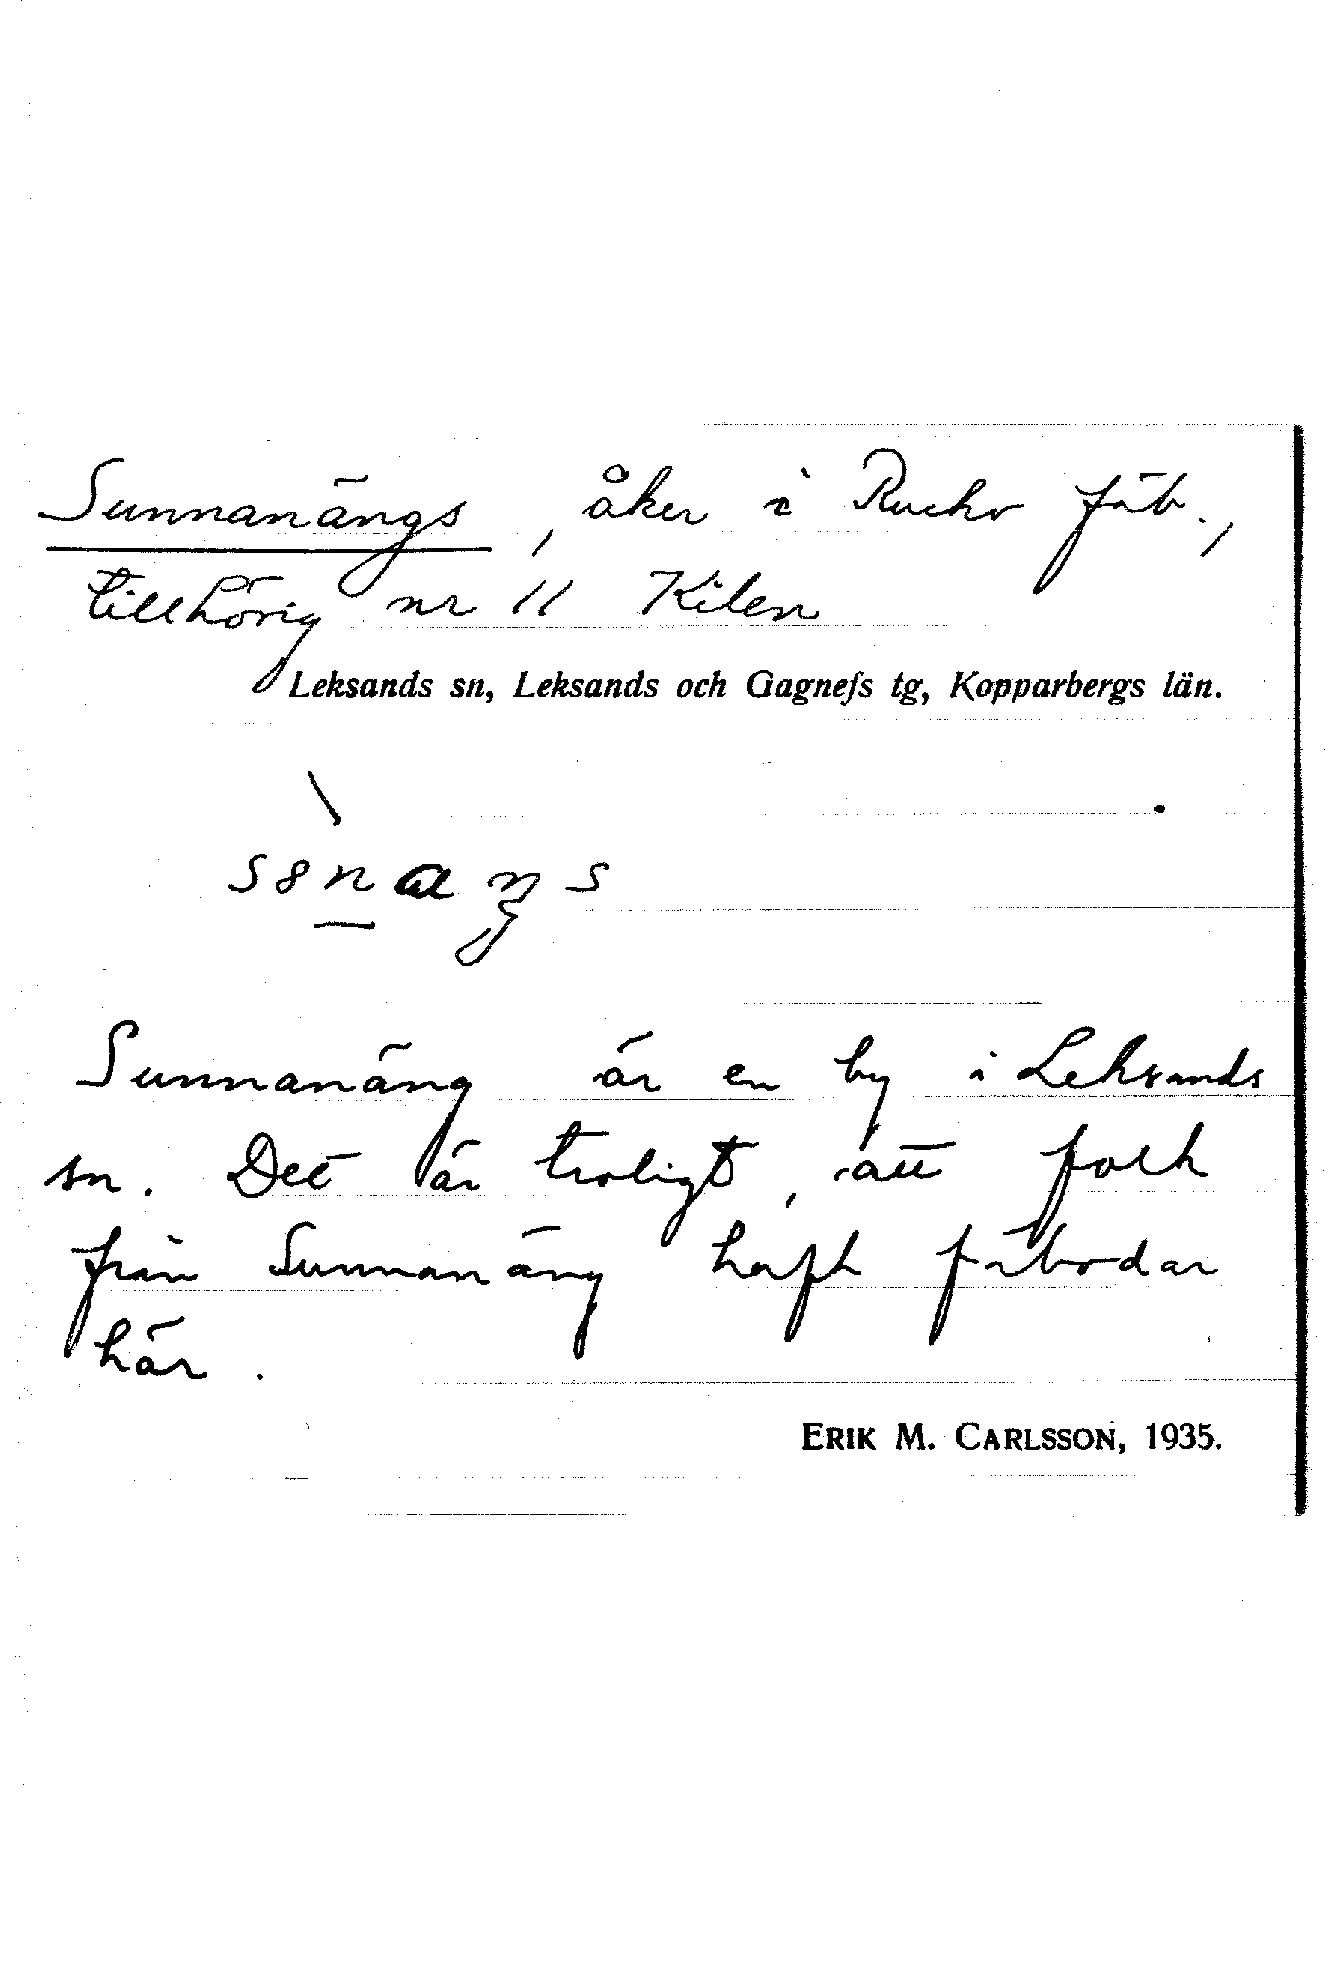 Sunnanängs, åker i Rucko fäb.,
tillhörig nr 11 Kilen
Leksands sn, Leksands och Gagnefs tg, Kopparbergs län.
Sunnanäng är en by i Leksands
sn. Det är troligt, att folk
från Sunnanäng haft fäbodar
här.
ERIK M. CARLSSON, 1935.